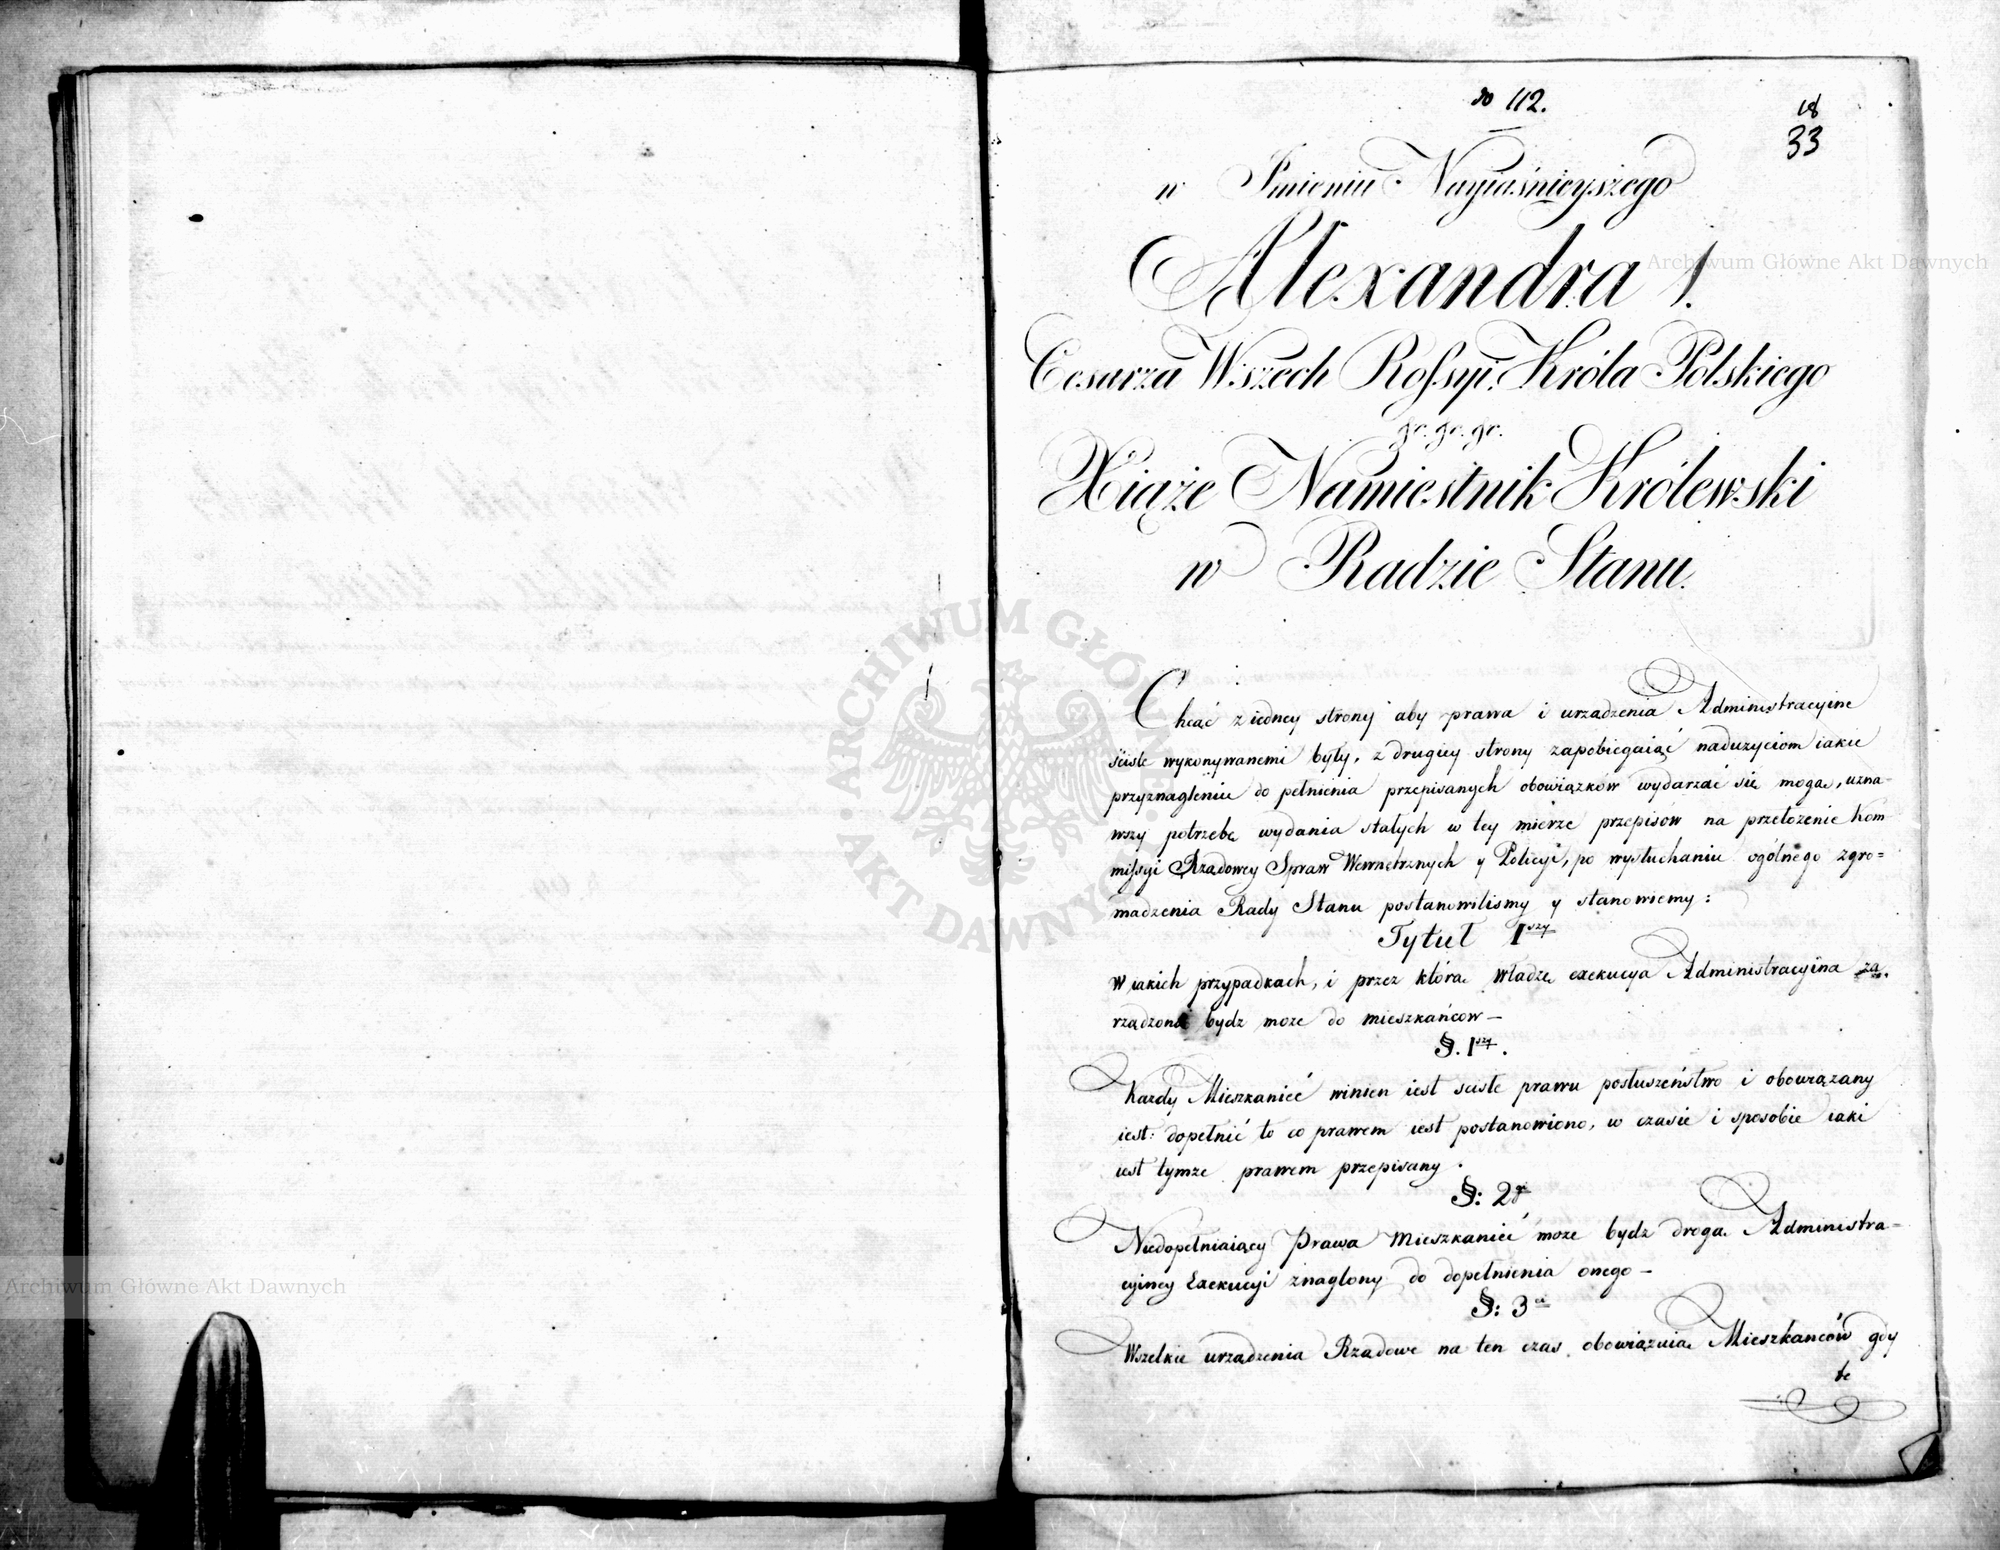 do 112.
18
33
w Imieniu Nayiaśnieyszego
Alexandra I.
Cesarza Wszech Rossyi, Króla Polskiego
&c. &c. &c.
Xiąże Namiestnik Królewski
w Radzie Stanu.
Chcąć z iedney strony aby prawa i urządzenia Administracyine
ściśle wykonywanemi były, z drugiey strony zapobiegaiąć nadużyciom iakie
przyznagleniu do pełnienia przepisanych obowiązków wydarzać się mogą, uzna-
wszy potrzebę wydania stałych w tey mierze przepisów na przełożenie Kom
missyi Rządowey Spraw Wewnętrznych y Policyi, po wysłuchaniu ogólnego zgro=
madzenia Rady Stanu postanowiliśmy y stanowiemy:
Tytuł Iszy
W iakich przypadkach, i przez którą władzę exekucya Administracyina za.
rządzoną bydz może do mieszkańców—
§. 1szy.
Każdy Mieszkanieć winien iest ściśle prawu posłuszeństwo i obowiązany
iest: dopełnić to co prawem iest postanowiono, w czasie i sposobie iaki
iest tymże prawem przepisany.
§: 2gi
Niedopełniaiący Prawa Mieszkanieć może bydz drogą Administra=
cyiney Exekucyi znaglony do dopełnienia onego—
§: 3ci
Wszelkie urządzenia Rządowe na ten czas obowiązuią Mieszkańców gdy
te
Archiwum Główne Akt Dawnych
Archiwum Główne Akt Dawnych
ARCHIWUM GŁÓWNE AKT DAWNYCH